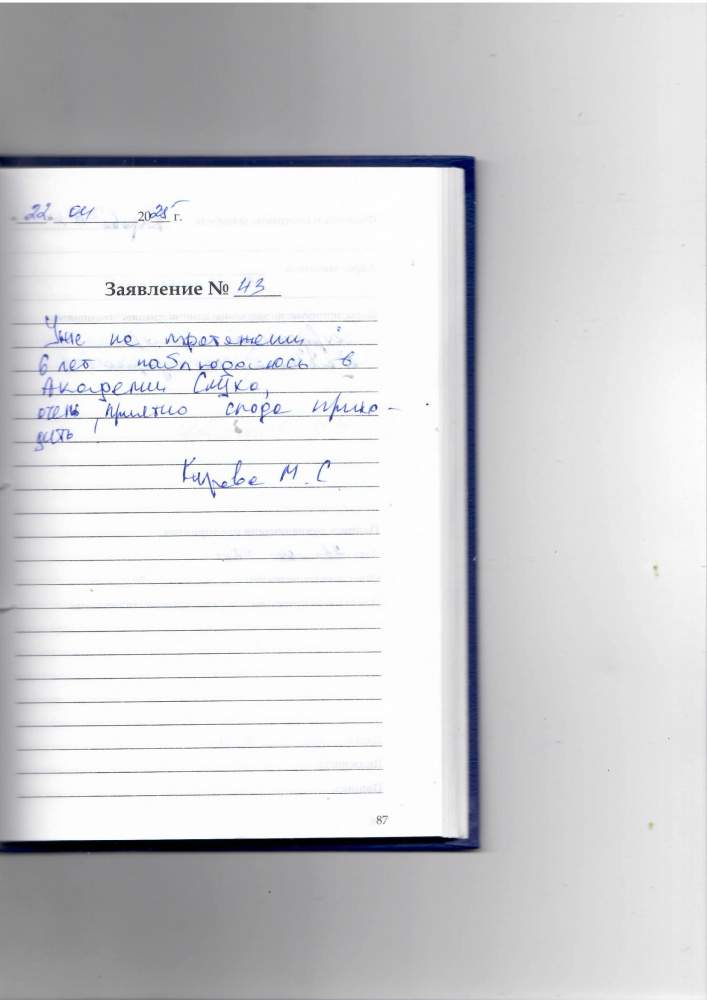 "22" 04 2025 г.
Заявление № 43
Уже на протяжении
6 лет наблюдаюсь в
Академии Слуха,
очень приятно сюда прихо-
дить
М. С.
87